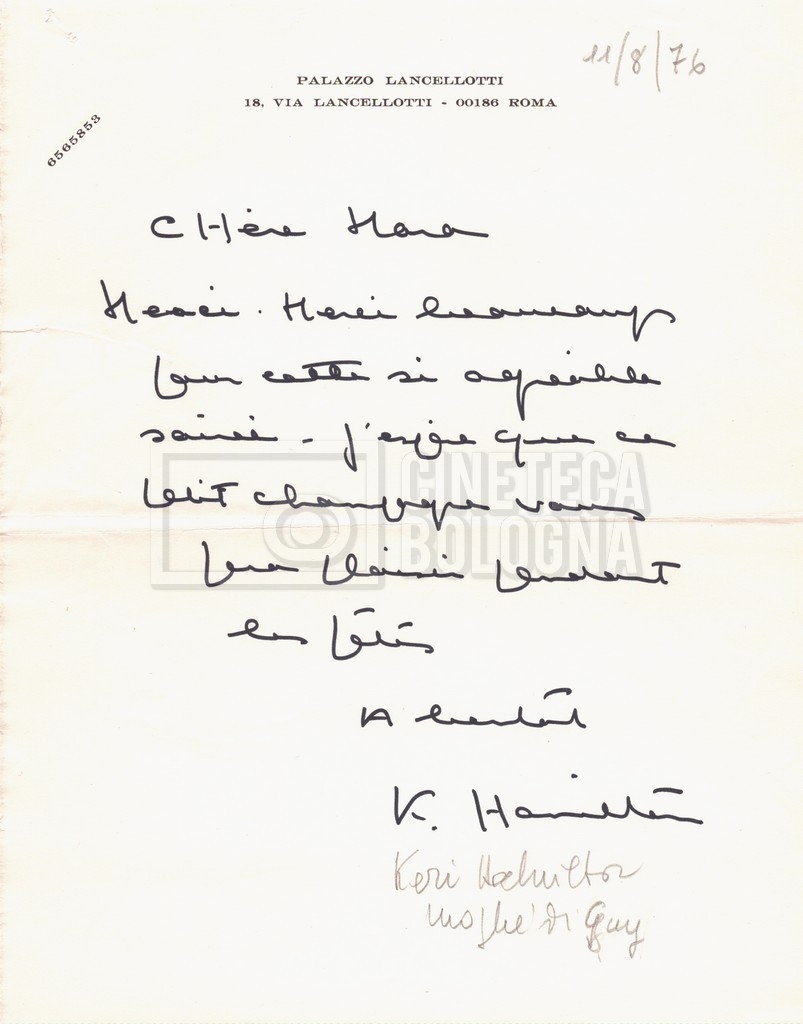 11/8/76
PALAZZO LANCELLOTTI
18, VIA LANCELLOTTI - 00186 ROMA
6565853
CHère Mara
Merci. Merci beaucoup
pour cette si agréable
soirée - J'espère que ce
petit champagne vous
fera plaisir pendant
les fêtes
A bientôt
K. Hamilton
Keri Hamilton
moglie di Guy
CINETECA
BOLOGNA